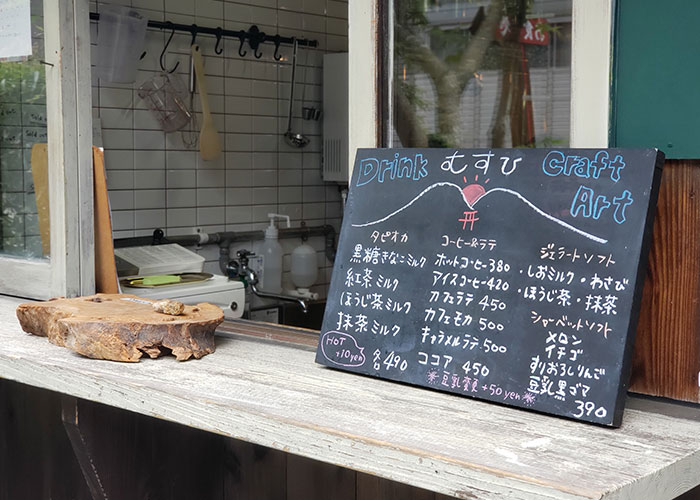 Drink むすひ Craft Art
タピオカ
黒糖きなこミルク
紅茶ミルク
ほうじ茶ミルク
抹茶ミルク
HOT +10yen
各490
コーヒー&ラテ
ホットコーヒー380
アイスコーヒー420
カフェラテ 450
カフェモカ 500
キャラメルラテ・500
ココア 450
※豆乳変更+50yen※
ジェラートソフト
・しおミルク・わさび
・ほうじ茶・抹茶
シャーベットソフト
メロン
イチゴ
すりおろしりんご
豆乳黒ゴマ
390